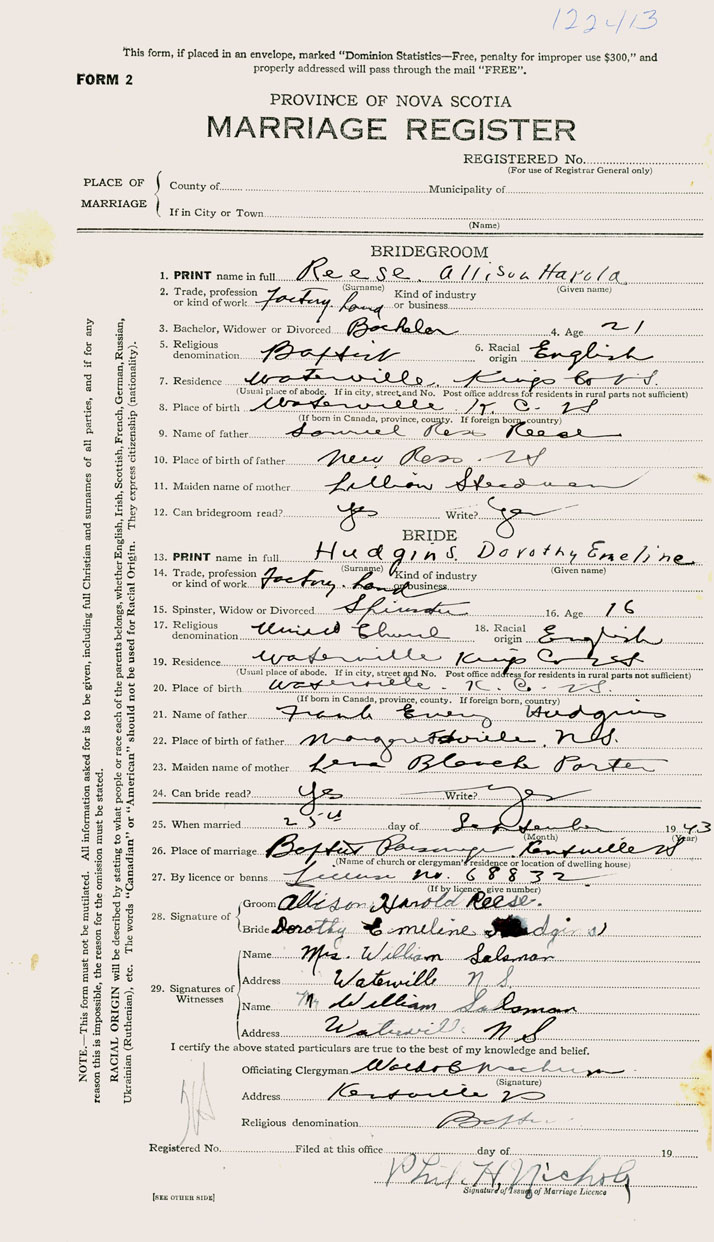 122413
This form, if placed in an envelope, marked "Dominion Statistics—Free, penalty for improper use $300," and
properly addressed will pass through the mail "FREE".
FORM 2
PROVINCE OF NOVA SCOTIA
MARRIAGE REGISTER
REGISTERED No.
(For use of Registrar General only)
PLACE OF MARRIAGE
County of Municipality of
If in City or Town
(Name)
BRIDEGROOM
1. PRINT name in full Reese. Allison Harold
(Surname) (Given name)
2. Trade, profession or kind of work Factory hand Kind of industry or business
3. Bachelor, Widower or Divorced Bachelor 4. Age 21
5. Religious denomination Baptist 6. Racial origin English
7. Residence Waterville, Kings Co NS.
(Usual place of abode. If in city, street and No. Post office address for residents in rural parts not sufficient)
8. Place of birth Waterville. K. C. NS
(If born in Canada, province, county. If foreign born, country)
9. Name of father Samuel Reese
10. Place of birth of father New Ross. NS
11. Maiden name of mother Lillian Steadman
12. Can bridegroom read? Yes Write? Yes
BRIDE
13. PRINT name in full Hudgins. Dorothy Emeline
(Surname) (Given name)
14. Trade, profession or kind of work Factory hand Kind of industry or business
15. Spinster, Widow or Divorced Spinster 16. Age 16
17. Religious denomination United Church 18. Racial origin English
19. Residence Waterville Kings Co NS
(Usual place of abode. If in city, street and No. Post office address for residents in rural parts not sufficient)
20. Place of birth Waterville. K. C. NS.
(If born in Canada, province, county. If foreign born, country)
21. Name of father Frank Hudgins
22. Place of birth of father Margretsville. N.S.
23. Maiden name of mother Lena Blanche Porter
24. Can bride read? Yes Write? Yes
25. When married 25th day of September 1943
(Month) (Year)
26. Place of marriage Baptist Parsonage Kentville NS
(Name of church or clergyman's residence or location of dwelling house)
27. By licence or banns License No. 68832
(If by licence, give number)
28. Signature of
Groom Allison Harold Reese.
Bride Dorothy Emeline Hudgins
29. Signatures of Witnesses
Name Mrs. William Salsman
Address Waterville N S.
Name Mr William Salsman
Address Waterville N S
I certify the above stated particulars are true to the best of my knowledge and belief.
Officiating Clergyman
(Signature)
Address Kentville NS
Religious denomination Baptist
Registered No. Filed at this office day of 19
Phil. H. Nichols
Signature of Issuer of Marriage Licence
[SEE OTHER SIDE]
NOTE.—This form must not be mutilated. All information asked for is to be given, including full Christian and surnames of all parties, and if for any
reason this is impossible, the reason for the omission must be stated.
RACIAL ORIGIN will be described by stating to what people or race each of the parents belongs, whether English, Irish, Scottish, French, German, Russian,
Ukrainian (Ruthenian), etc. The words "Canadian" or "American" should not be used for Racial Origin. They express citizenship (nationality).